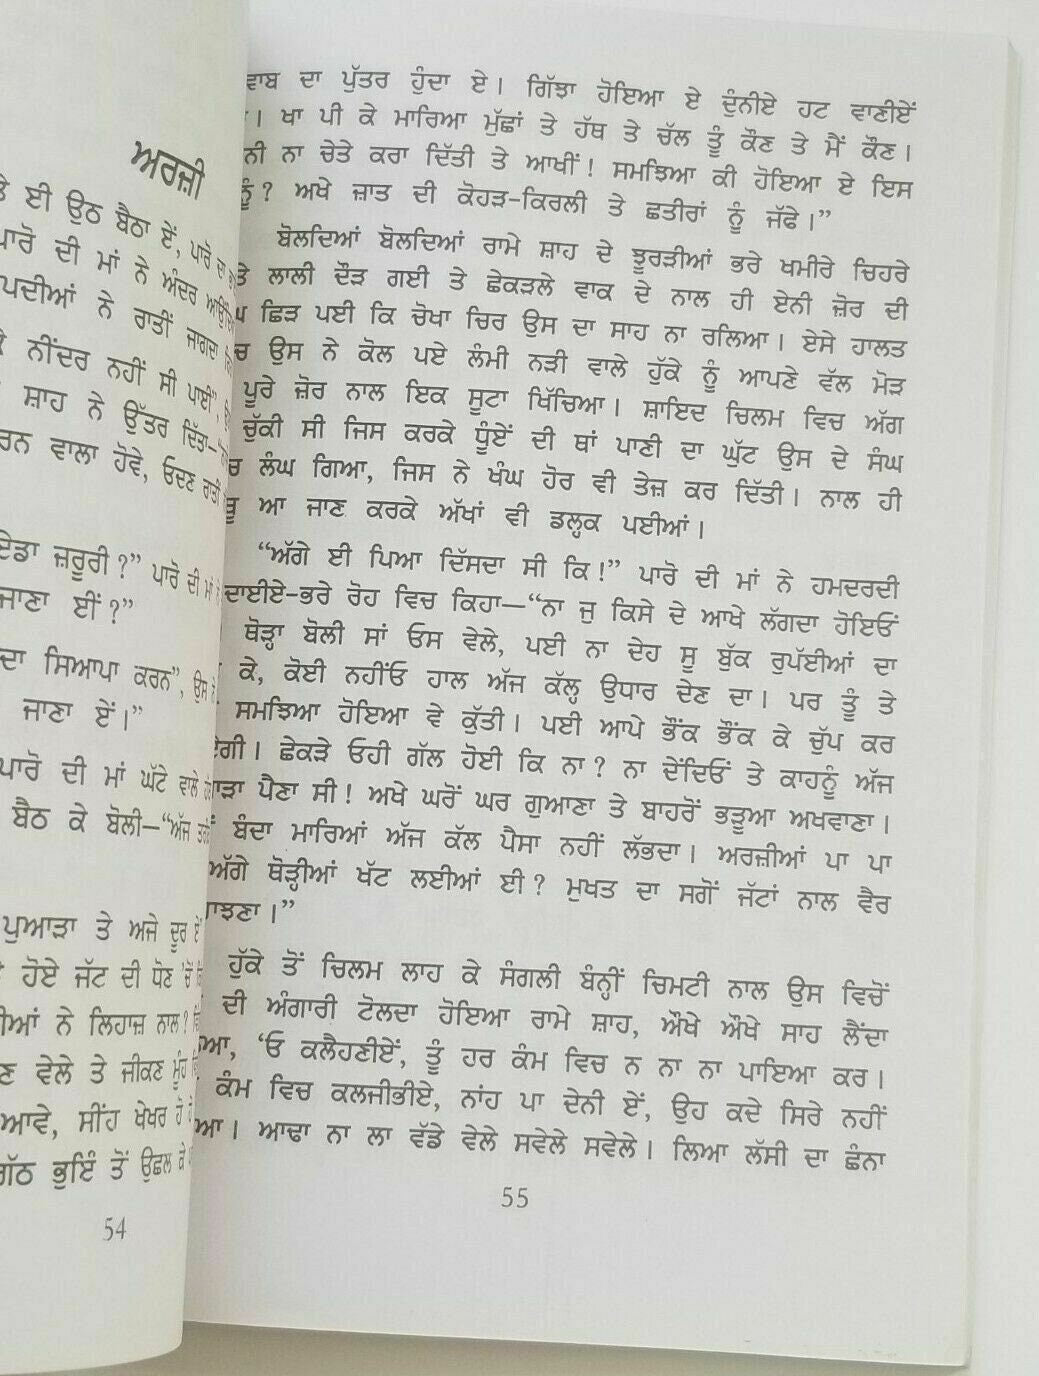 ਅਰਜ਼ੀ
ਈ ਉਠ ਬੈਠਾ ਏਂ, ਪਾਰੋ ਦਾ
ਪਾਰੋ ਦੀ ਮਾਂ ਨੇ ਅੰਦਰ
ਪਦੀਆਂ ਨੇ ਰਾਤੀਂ ਜਾਗਦਾ
ਨੀਂਦਰ ਨਹੀਂ ਸੀ ਪਾਈ”,
ਸ਼ਾਹ ਨੇ ਉੱਤਰ ਦਿੱਤਾ—
ਰਨ ਵਾਲਾ ਹੋਵੇ, ਓਦਣ ਰਾਤੀਂ
ਏਡਾ ਜ਼ਰੂਰੀ?” ਪਾਰੋ ਦੀ ਮਾਂ ਨੇ
ਜਾਣਾ ਈਂ?”
ਦਾ ਸਿਆਪਾ ਕਰਨ”, ਉਸ ਨੇ
ਜਾਣਾ ਏਂ।”
ਪਾਰੋ ਦੀ ਮਾਂ ਘੱਟੇ ਵਾਲੇ
ਬੈਠ ਕੇ ਬੋਲੀ—“ਅੱਜ
ਪੁਆੜਾ ਤੇ ਅਜੇ ਦੂਰ ਏਂ
ਹੋਏ ਜੱਟ ਦੀ ਧੋਣ 'ਚੋਂ
ਆਂ ਨੇ ਲਿਹਾਜ਼ ਨਾਲ?
ਣ ਵੇਲੇ ਤੇ ਜੀਕਣ ਮੂੰਹ
ਆਵੇ, ਸੀਂਹ ਖੇਖਰ ਹੋ
ਗੱਠ ਭੁਇੰ ਤੋਂ ਉਛਲ ਕੇ
54
ਵਾਬ ਦਾ ਪੁੱਤਰ ਹੁੰਦਾ ਏ। ਗਿੱਝਾ ਹੋਇਆ ਏ ਦੁੰਨੀਏ ਹਟ ਵਾਣੀਏਂ
। ਖਾ ਪੀ ਕੇ ਮਾਰਿਆ ਮੁੱਛਾਂ ਤੇ ਹੱਥ ਤੇ ਚੱਲ ਤੂੰ ਕੌਣ ਤੇ ਮੈਂ ਕੌਣ।
ਨੀ ਨਾ ਚੇਤੇ ਕਰਾ ਦਿੱਤੀ ਤੇ ਆਖੀਂ! ਸਮਝਿਆ ਕੀ ਹੋਇਆ ਏ ਇਸ
ਨੂੰ? ਅਖੇ ਜ਼ਾਤ ਦੀ ਕੋਹੜ-ਕਿਰਲੀ ਤੇ ਛਤੀਰਾਂ ਨੂੰ ਜੱਫੇ।”
ਬੋਲਦਿਆਂ ਬੋਲਦਿਆਂ ਰਾਮੇ ਸ਼ਾਹ ਦੇ ਝੂਰੜੀਆਂ ਭਰੇ ਖਮੀਰੇ ਚਿਹਰੇ
ਤੇ ਲਾਲੀ ਦੌੜ ਗਈ ਤੇ ਛੇਕੜਲੇ ਵਾਕ ਦੇ ਨਾਲ ਹੀ ਏਨੀ ਜ਼ੋਰ ਦੀ
ਘ ਛਿੜ ਪਈ ਕਿ ਚੋਖਾ ਚਿਰ ਉਸ ਦਾ ਸਾਹ ਨਾ ਰਲਿਆ। ਏਸੇ ਹਾਲਤ
ਚ ਉਸ ਨੇ ਕੋਲ ਪਏ ਲੰਮੀ ਨੜੀ ਵਾਲੇ ਹੁੱਕੇ ਨੂੰ ਆਪਣੇ ਵੱਲ ਮੋੜ
ਪੂਰੇ ਜ਼ੋਰ ਨਾਲ ਇਕ ਸੂਟਾ ਖਿੱਚਿਆ। ਸ਼ਾਇਦ ਚਿਲਮ ਵਿਚ ਅੱਗ
ਚੁੱਕੀ ਸੀ ਜਿਸ ਕਰਕੇ ਧੂੰਏਂ ਦੀ ਥਾਂ ਪਾਣੀ ਦਾ ਘੁੱਟ ਉਸ ਦੇ ਸੰਘ
ਚ ਲੰਘ ਗਿਆ, ਜਿਸ ਨੇ ਖੰਘ ਹੋਰ ਵੀ ਤੇਜ਼ ਕਰ ਦਿੱਤੀ। ਨਾਲ ਹੀ
ਆ ਜਾਣ ਕਰਕੇ ਅੱਖਾਂ ਵੀ ਡਲ੍ਹਕ ਪਈਆਂ।
“ਅੱਗੇ ਈ ਪਿਆ ਦਿੱਸਦਾ ਸੀ ਕਿ!” ਪਾਰੋ ਦੀ ਮਾਂ ਨੇ ਹਮਦਰਦੀ
ਦਾਈਏ-ਭਰੇ ਰੋਹ ਵਿਚ ਕਿਹਾ—“ਨਾ ਜੁ ਕਿਸੇ ਦੇ ਆਖੇ ਲੱਗਦਾ ਹੋਇਓਂ
ਥੋੜ੍ਹਾ ਬੋਲੀ ਸਾਂ ਓਸ ਵੇਲੇ, ਪਈ ਨਾ ਦੇਹ ਸੂ ਬੁੱਕ ਰੁਪੱਈਆਂ ਦਾ
ਕੇ, ਕੋਈ ਨਹੀਂਓ ਹਾਲ ਅੱਜ ਕੱਲ੍ਹ ਉਧਾਰ ਦੇਣ ਦਾ। ਪਰ ਤੂੰ ਤੇ
ਸਮਝਿਆ ਹੋਇਆ ਵੇ ਕੁੱਤੀ। ਪਈ ਆਪੇ ਭੌਂਕ ਭੌਂਕ ਕੇ ਚੁੱਪ ਕਰ
ਏਗੀ। ਛੇਕੜੇ ਓਹੀ ਗੱਲ ਹੋਈ ਕਿ ਨਾ? ਨਾ ਦੇਂਦਿਓਂ ਤੇ ਕਾਹਨੂੰ ਅੱਜ
ਆੜਾ ਪੈਣਾ ਸੀ! ਅਖੇ ਘਰੋਂ ਘਰ ਗੁਆਣਾ ਤੇ ਬਾਹਰੋਂ ਭੜੂਆ ਅਖਵਾਣਾ।
ਬੰਦਾ ਮਾਰਿਆਂ ਅੱਜ ਕੱਲ ਪੈਸਾ ਨਹੀਂ ਲੱਭਦਾ। ਅਰਜ਼ੀਆਂ ਪਾ ਪਾ
ਅੱਗੇ ਥੋੜ੍ਹੀਆਂ ਖੱਟ ਲਈਆਂ ਈ? ਮੁਖਤ ਦਾ ਸਗੋਂ ਜੱਟਾਂ ਨਾਲ ਵੈਰ
ਝਣਾ।”
ਹੁੱਕੇ ਤੋਂ ਚਿਲਮ ਲਾਹ ਕੇ ਸੰਗਲੀ ਬੰਨ੍ਹੀਂ ਚਿਮਟੀ ਨਾਲ ਉਸ ਵਿਚੋਂ
ਦੀ ਅੰਗਾਰੀ ਟੋਲਦਾ ਹੋਇਆ ਰਾਮੇ ਸ਼ਾਹ, ਔਖੇ ਔਖੇ ਸਾਹ ਲੈਂਦਾ
ਆ, ‘ਓ ਕਲੈਹਣੀਏਂ, ਤੂੰ ਹਰ ਕੰਮ ਵਿਚ ਨ ਨਾ ਨਾ ਪਾਇਆ ਕਰ।
ਕੰਮ ਵਿਚ ਕਲਜੀਭੀਏ, ਨਾਂਹ ਪਾ ਦੇਨੀ ਏਂ, ਉਹ ਕਦੇ ਸਿਰੇ ਨਹੀਂ
ਆ। ਆਢਾ ਨਾ ਲਾ ਵੱਡੇ ਵੇਲੇ ਸਵੇਲੇ ਸਵੇਲੇ। ਲਿਆ ਲੱਸੀ ਦਾ ਛੰਨਾ
55